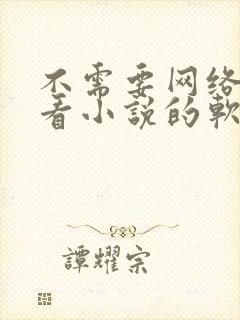 不需要网络
看小说的软
譚耀宗